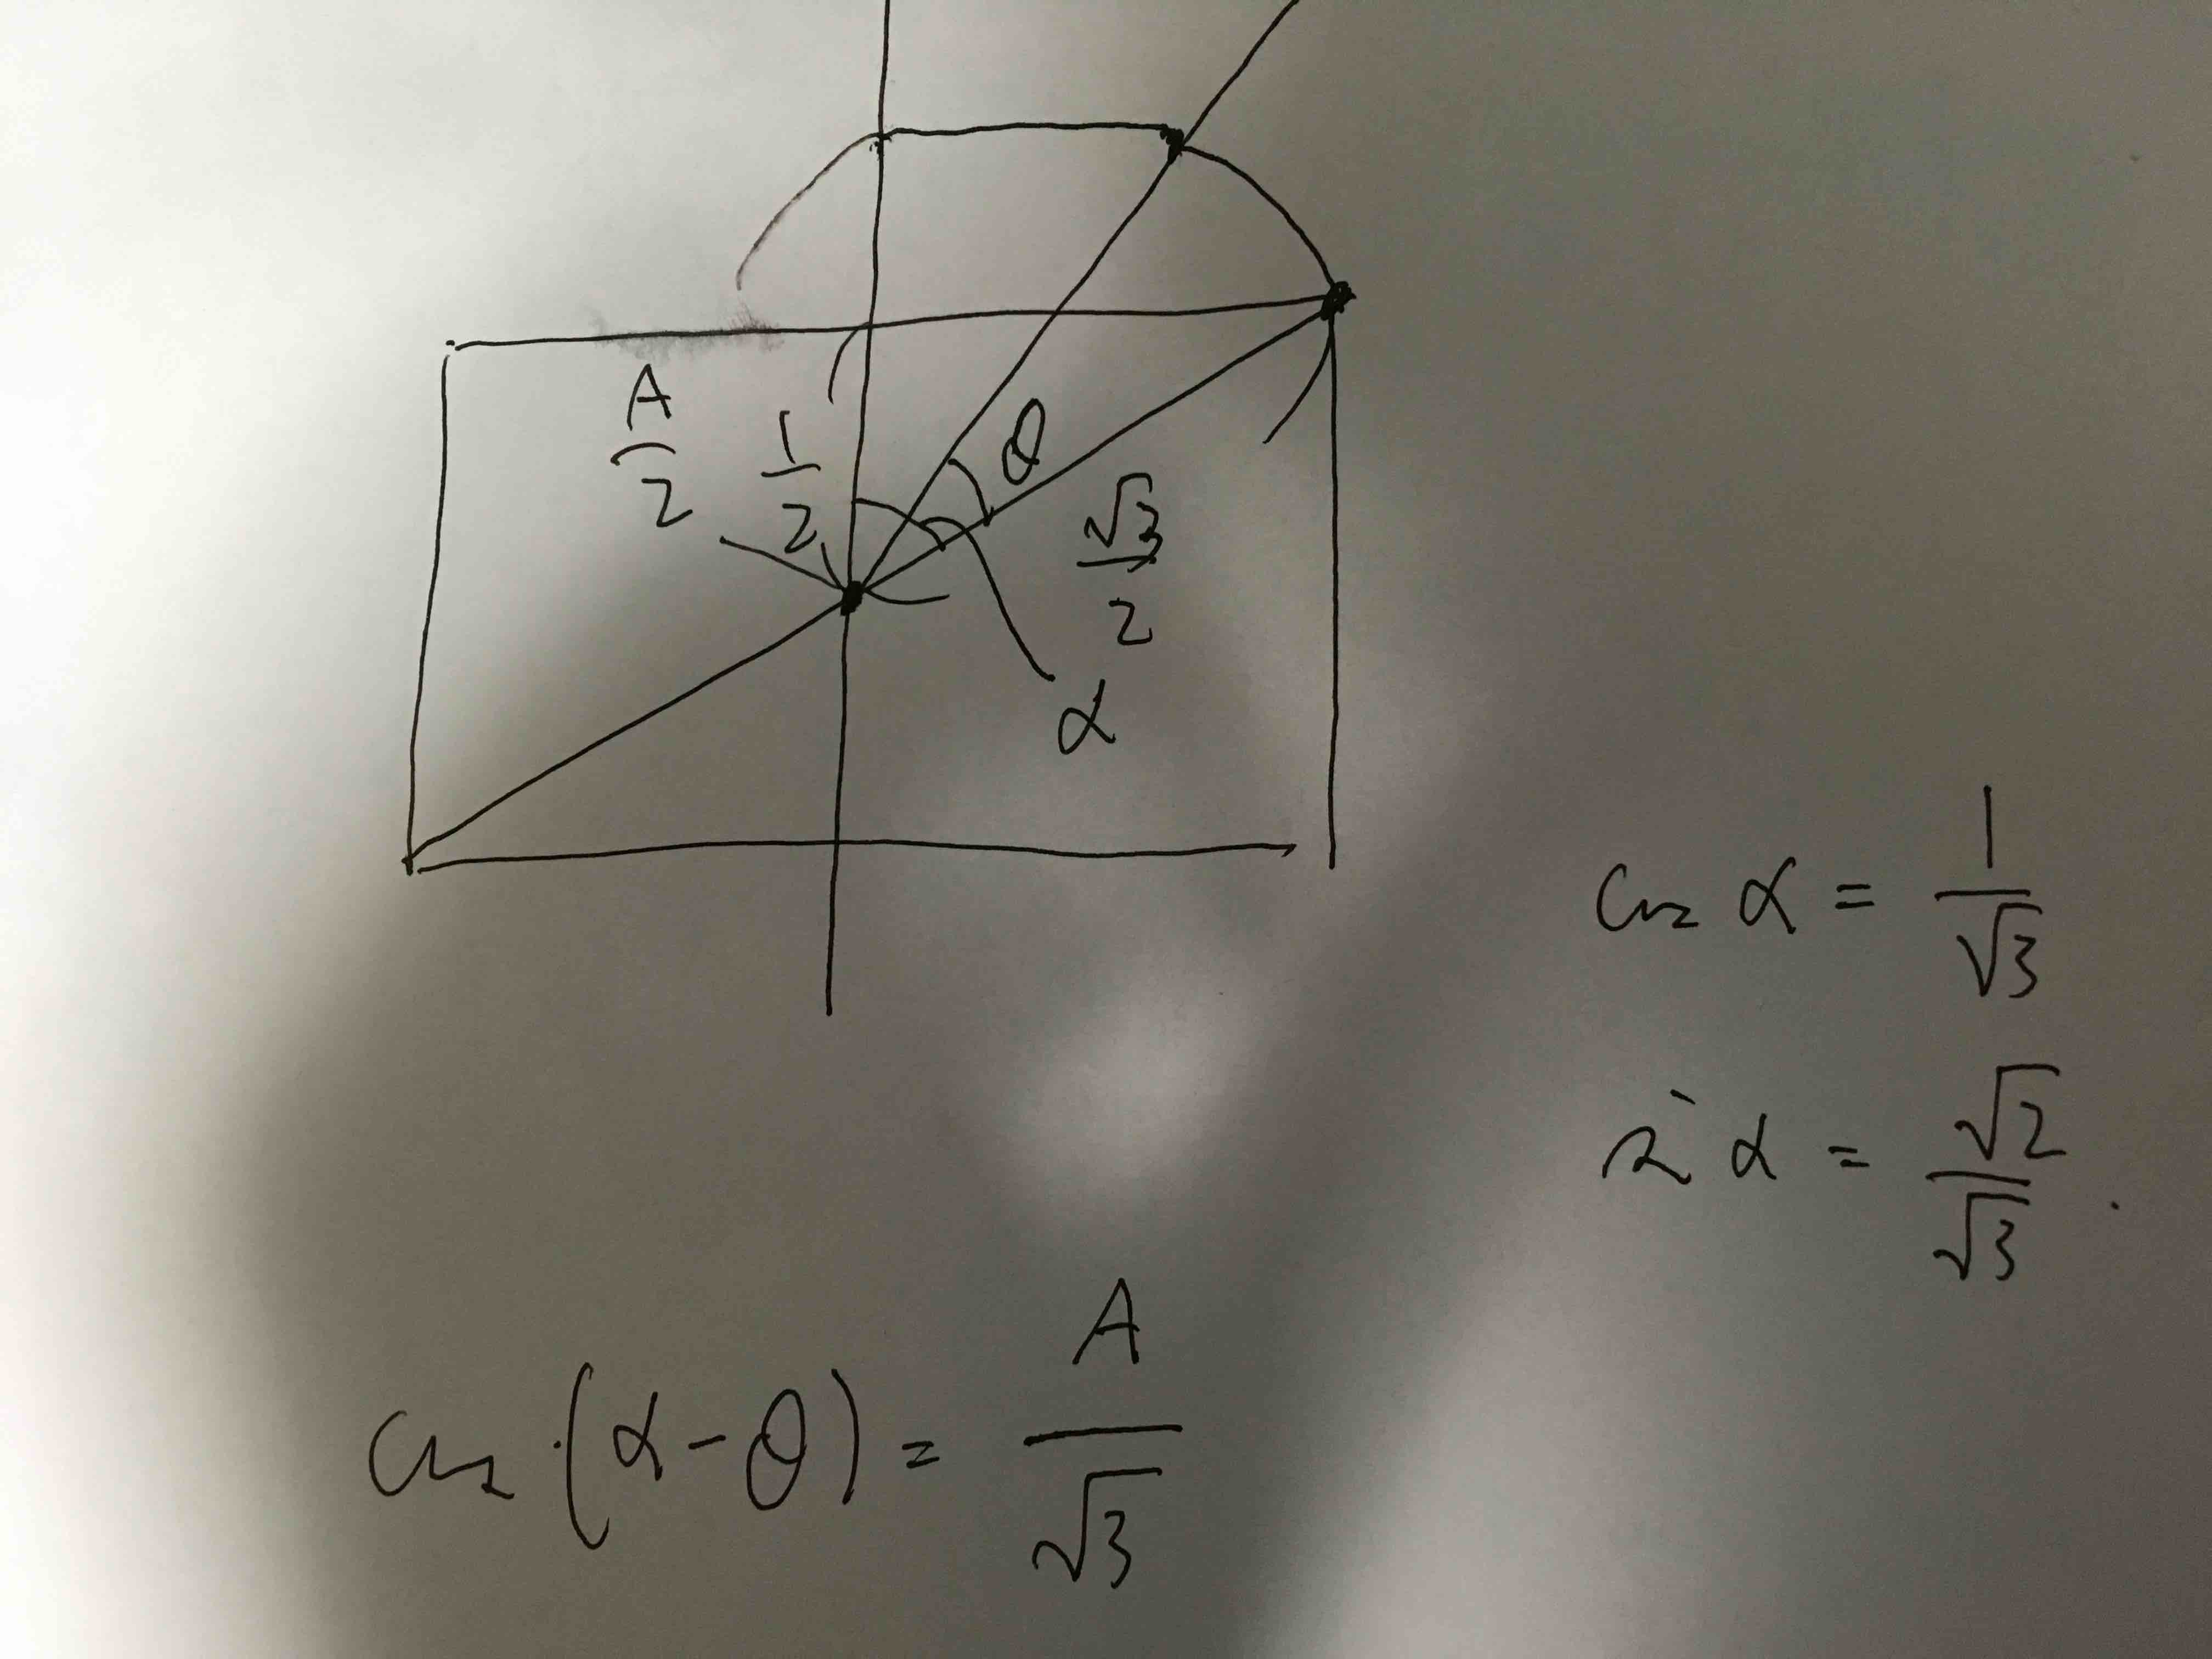 A/2
1/2
θ
√3/2
α
cos α = 1/√3
sin α = √2/√3 .
cos (α-θ) = A/√3